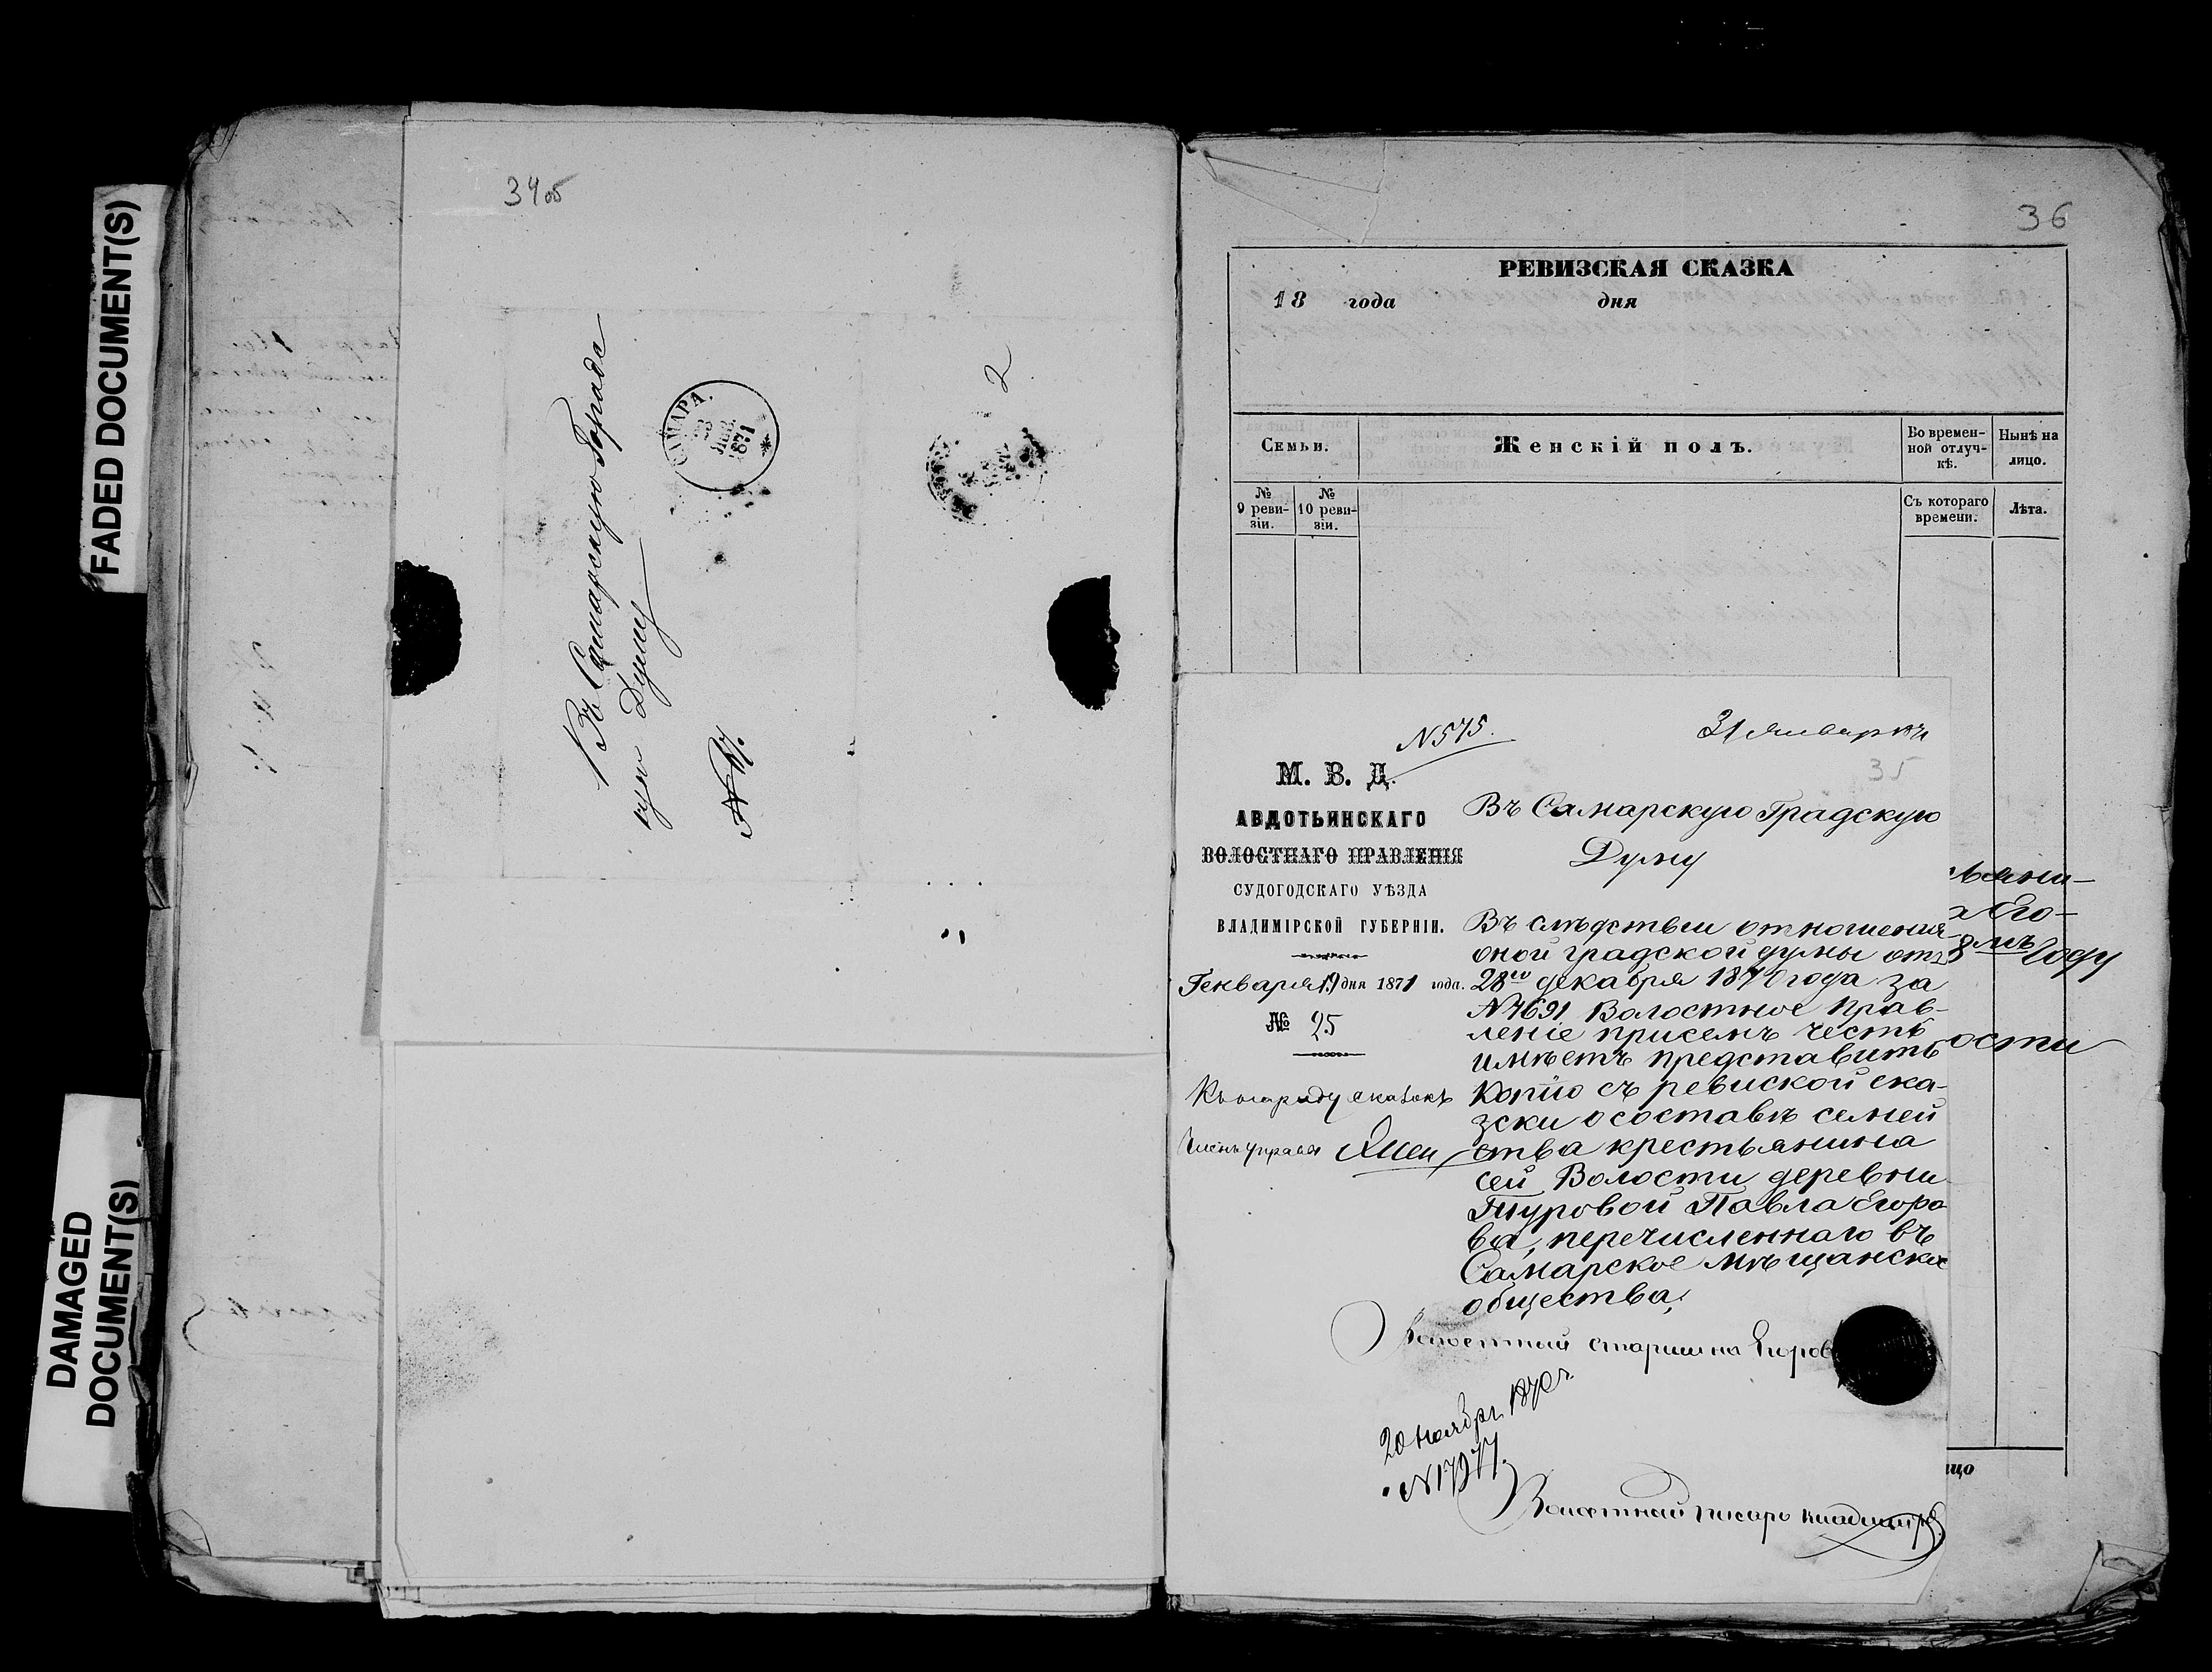 FADED DOCUMENT(S)
DAMAGED
DOCUMENT(S)
34об
Въ Самарскую Город
скую Думу
САМАРА.
23
ЯНВ.
1871
2
36
РЕВИЗСКАЯ СКАЗКА
18 года дня
Семьи.
Женскій полъ.
Во времен-
ной отлуч-
кѣ.
Нынѣ на
лицо.
№
9 реви-
зіи.
№
10 реви-
зіи.
Съ котораго
времени.
Лѣта.
N 575.
31 Января
35
М. В. Д.
АВДОТЬИНСКАГО
ВОЛОСТНАГО ПРАВЛЕНІЯ
СУДОГОДСКАГО УѢЗДА
ВЛАДИМІРСКОЙ ГУБЕРНІИ.
Генваря 19 дня 1871 года.
№ 25
Къ наряду сказокъ
Членъ управы
Въ Самарскую Градскую
Думу
Въ слѣдствіи отношенія
оной градской думы отъ
28го декабря 1870 года за
N 7691 Волостное прав-
леніе присемъ честь
имѣетъ представить
Копію съ ревиской ска-
зски о составѣ семей
ства крестьянина
сей Волости деревни
Туровой Павла Егоро
ва, перечисленнаго въ
Самарское мѣщанское
общества.
Волостный старшина Егоровъ
20 Ноября 1870 г.
N 17977.
Волостной писарь
ости
Его-
году
цо